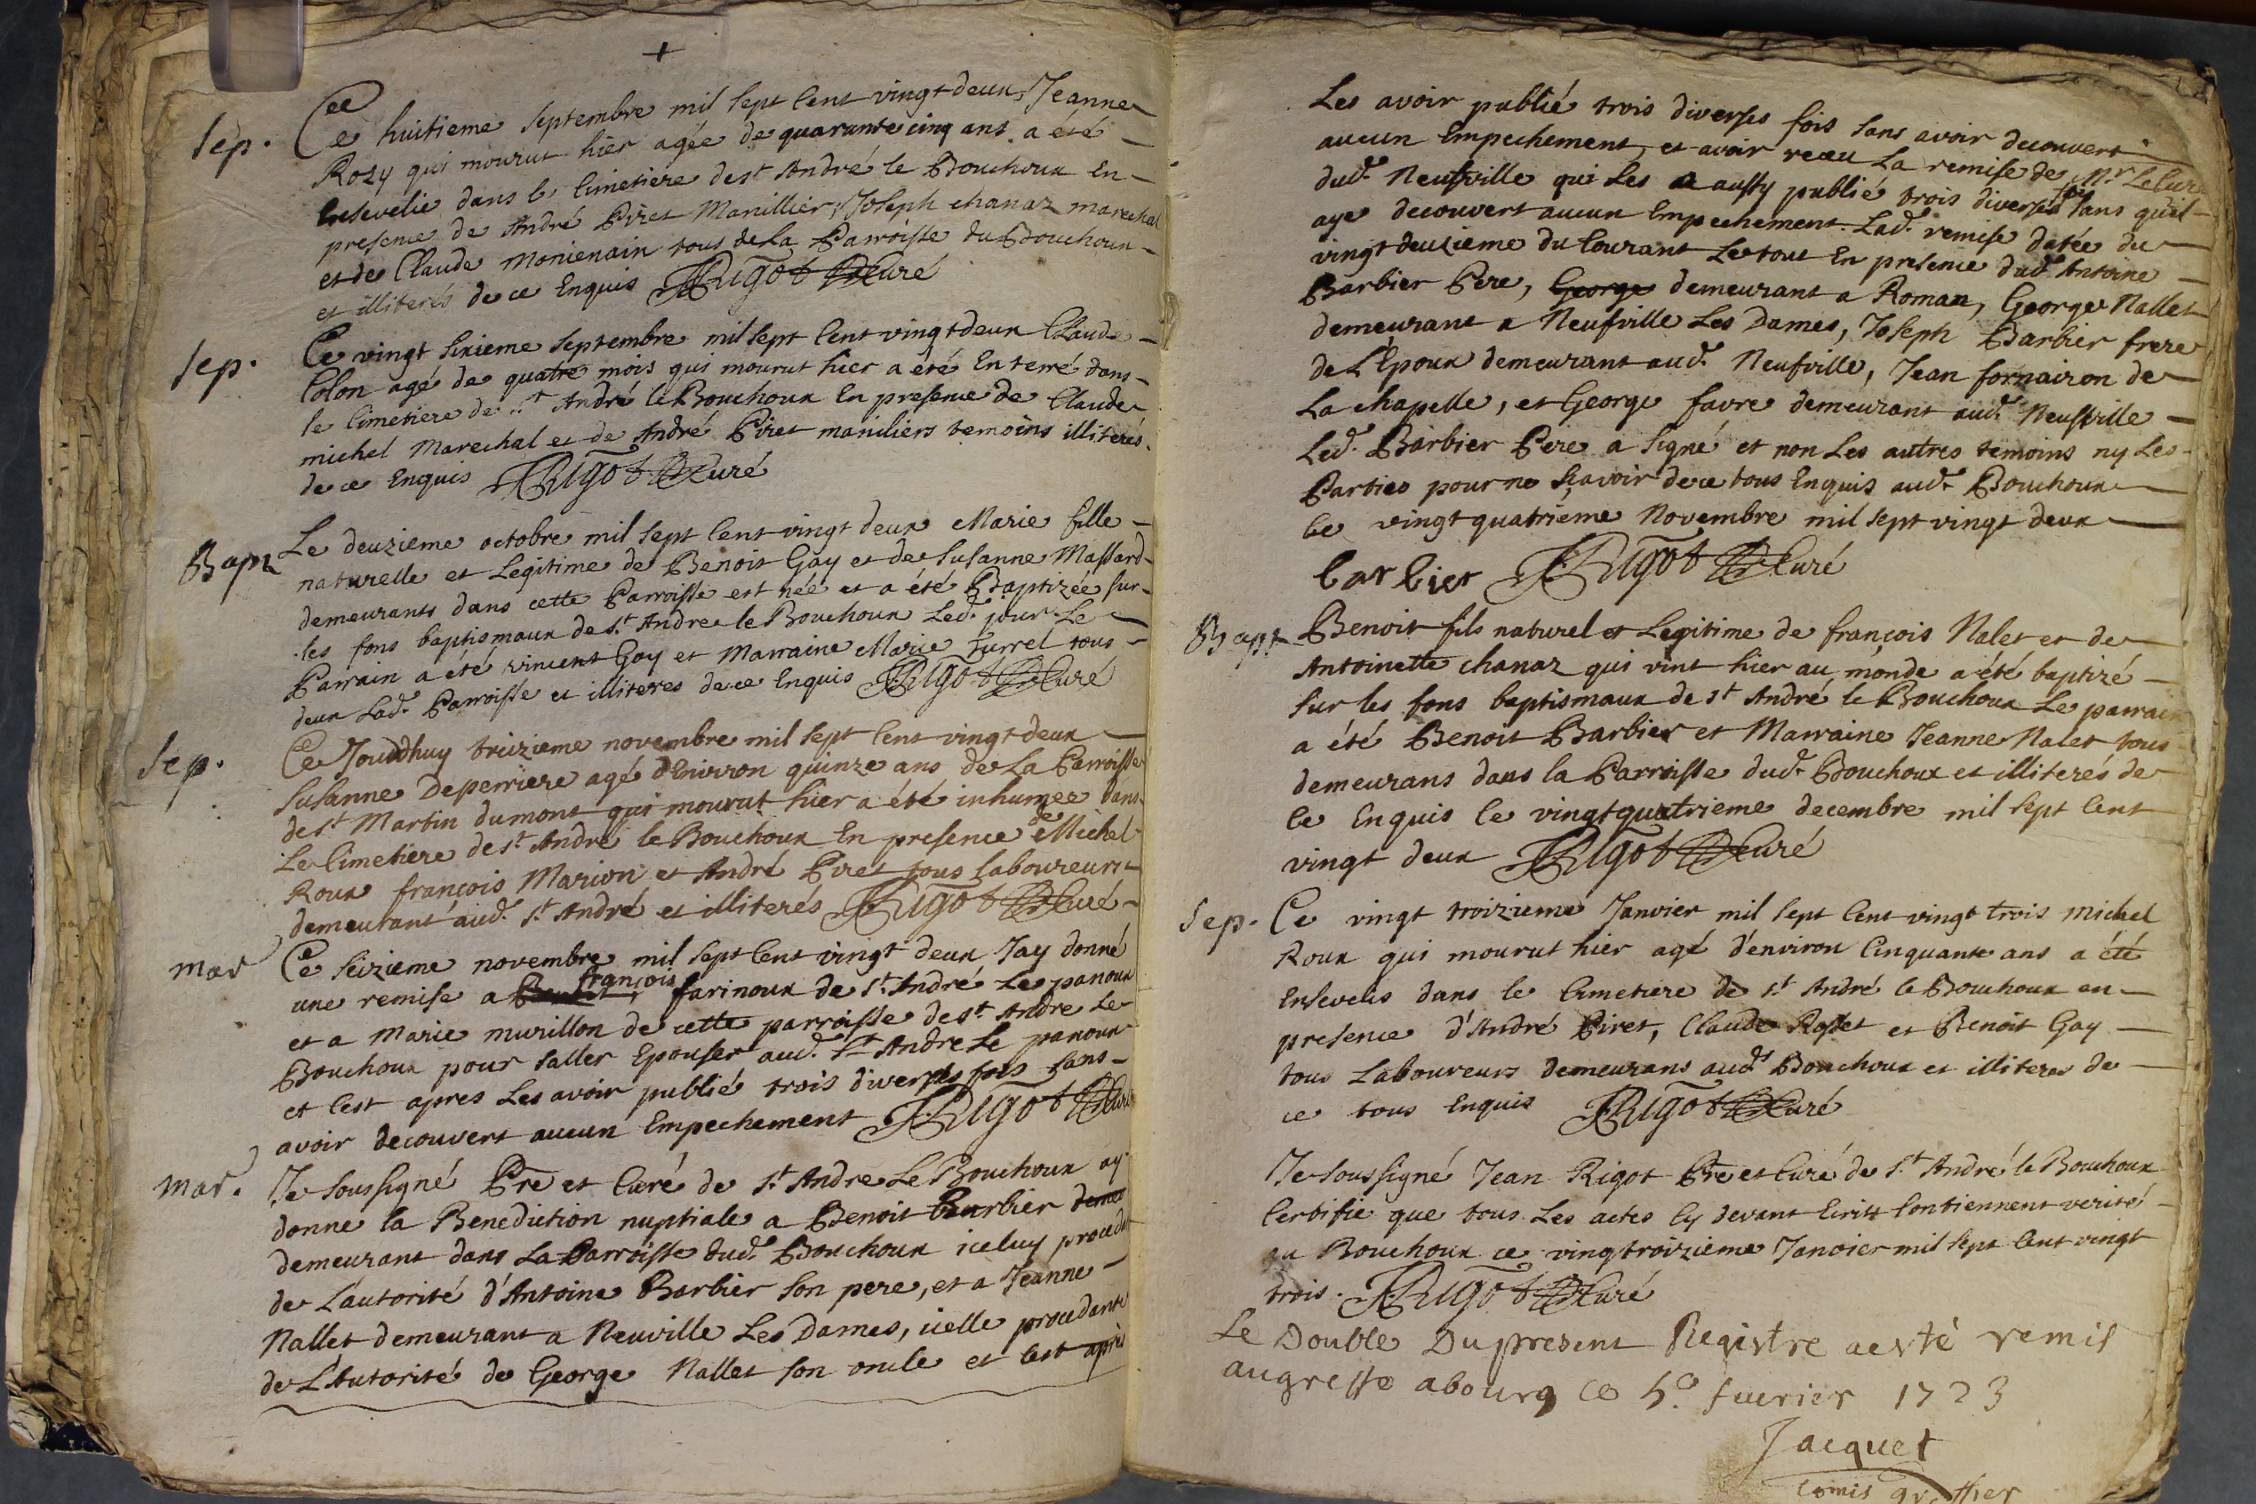 +
Sep. Ce huitieme Septembre mil sept Cent vingt deux, Jeanne
Rozy qui mourut hier agée de quarante cinq ans a été
Ensevelie dans le Cimetiere de st André le Bouchoux En
presence de André Piret Manillier, Joseph chanaz marechal
et de Claude monienain tous de La Parroisse du Bouchoux
et illiterés de ce Enquis JRigot Curé
Sep. Ce vingt Sixieme Septembre mil sept Cent vingt deux Claude
Colon agé de quatre mois qui mourut hier a été Enterré dans
le Cimetiere de st André le Bouchoux En presence de Claude
michel Marechal et de André Piret maniliers temoins illiterés
de ce Enquis JRigot Curé
Bapt Le deuzieme octobre mil sept Cent vingt deux Marie fille
naturelle et Legitime de Benoit Gay et de Susanne Massard
demeurants dans cette Parroisse est née et a été Baptizée sur
les fons baptismaux de st Andre le Bouchoux Led. jour Le
Parrain a été vincent Gay et Marraine Marie Furrel tous
deux Lad. Parroisse et illiteres de ce Enquis JRigot Curé
Sep. Ce Jourdhuy treizieme novembre mil sept Cent vingt deux
Susanne Deperriere agé d'Environ quinze ans de La Parroisse
de st Martin dumont qui mourut hier a été inhumée dans
Le Cimetiere de st André le Bouchoux En presence de Michel
Roux françois Marion et André Piret tous Laboureurs
demeurant aud. st André et illiterés JRigot Curé
mar Ce seizieme novembre mil sept Cent vingt deux Jay donné
une remise a françois farinoux de st André Le panoux
et a Marie murillon de cette parroisse de st Andre Le
Bouchoux pour saller Epouser aud. st Andre Le panoux
et Cest apres Les avoir publié trois diverses fois sans
avoir decouvert aucun Empechement JRigot Curé
mar. Je soussigné Pre et Curé de st Andre Le Bouchoux ay
donne la Benediction nuptiale a Benoit Barbier demeu
demeurant dans La Parroisse dud. Bouchoux iceluy procedant
de L'autorité d'Antoine Barbier son pere, et a Jeanne
Nallet demeurant a Neuville Les Dames, icelle procedante
de L'Autorité de George Nallet son oncle et Cest après
Les avoir publié trois diverses fois sans avoir decouvert
aucun Empechement, et avoir receu La remise de Mr Le Curé
dud. Neufville qui Les a aussy publié trois diverses fois sans quil
aye decouvert aucun Empechement. Lad. remise datée du
vingt deuzieme du Courant Le tout En presence dud. Antoine
Barbier Pere, George demeurant a Roman, George Nallet
demeurant a Neufville Les Dames, Joseph Barbier frere
de L'Epoux demeurant aud. Neufville, Jean fornairon de
La chapelle, et George favre demeurant aud. Neufville
Led. Barbier Pere a signé et non Les autres temoins ny Les
Parties pour ne sçavoir de ce tous Enquis aud. Bouchoux
Ce vingt quatrième Novembre mil sept vingt deux
barbier JRigot Curé
Bapt Benoit fils naturel et Legitime de françois Nalet et de
Antoinette chanaz qui vint hier au monde a été baptizé
sur les fons baptismaux de st André le Bouchoux Le parrain
a été Benoit Barbier et Marraine Jeanne Nalet tous
demeurans dans la Parroisse dud. Bouchoux et illiterés de
Ce Enquis le vingt quatrieme decembre mil sept Cent
vingt deux JRigot Curé
Sep. Ce vingt troizieme Janvier mil sept Cent vingt trois michel
Roux qui mourut hier agé d'environ Cinquante ans a été
Ensevelis dans le Cimetiere de st André le Bouchoux en
presence d'André Piret, Claude Rosset et Benoit Gay
tous Laboureurs demeurans aud. Bouchoux et illiteres de
ce tous Enquis JRigot Curé
Je soussigné Jean Rigot Pre et Curé de st André le Bouchoux
Certifie que tous Les actes Cy devant Ecrits Contiennent verité
au Bouchoux ce vingtroizieme Janvier mil sept Cent vingt
trois. JRigot Curé
Le Double Dupresent Registre aesté remis
augreffe abourg Ce 5e. feuvrier 1723
Jacquet
Comis greffier